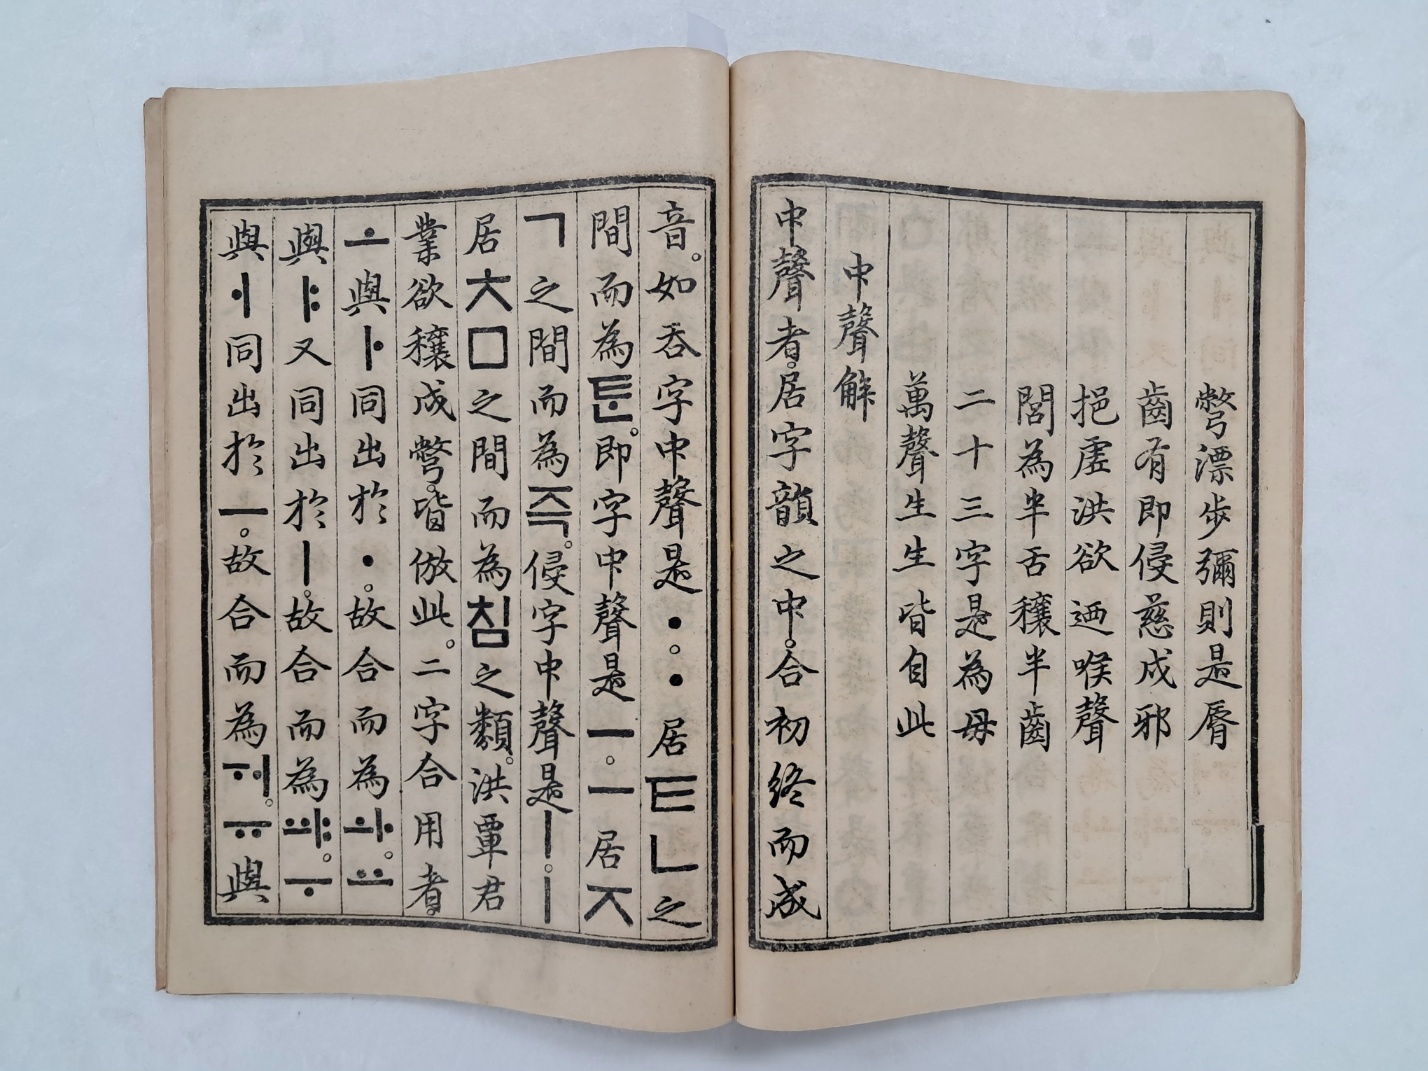 彆漂步彌則是脣
齒有即侵慈戌邪
挹虛洪欲迺喉聲
閭為半舌穰半齒
二十三字是為母
萬聲生生皆自此
中聲解
中聲者。居字韻之中。合初終而成
音。如呑字中聲是ㆍ。ㆍ居ㅌㄴ之
間而為ᄐᆞᆫ。即字中聲是ㅡ。ㅡ居ㅈ
ㄱ之間而為즉。侵字中聲是ㅣ。ㅣ
居ㅊㅁ之間而為침之類。洪覃君
業欲穰戌彆。皆倣此。二字合用者。
ㅗ與ㅏ同出於ㆍ。故合而為ㅘ。ㅛ
與ㅑ又同出於ㅣ。故合而為ㆇ。ㅜ
與ㅓ同出於ㅡ。故合而為ㅝ。ㅠ與